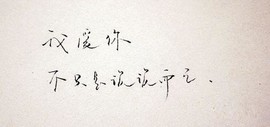 我爱你
不只是说说而已.